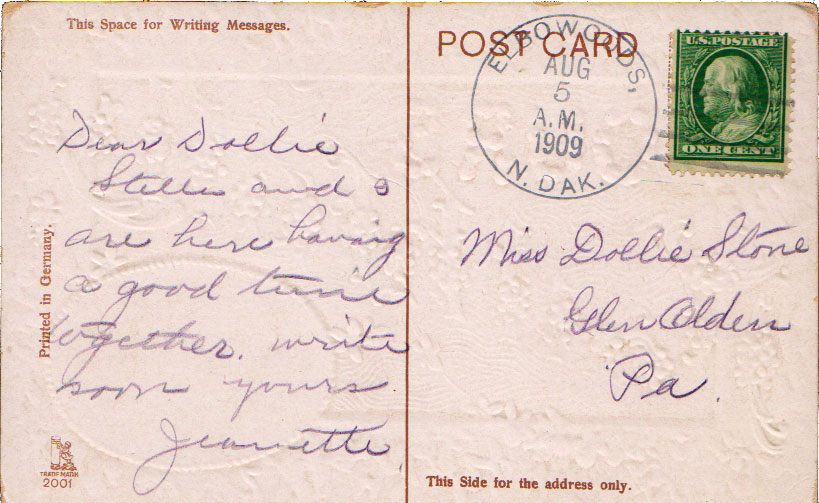 This Space for Writing Messages.
Dear Dollie
Stella and I
are here having
a good time
together. write
soon yours
Jeanette.
Printed in Germany.
TRADE MARK
2001
POST CARD
ELBOWOODS,
AUG
5
A.M.
1909
N. DAK.
U.S. POSTAGE
ONE CENT
Miss Dollie Stone
Glen Olden
Pa.
This Side for the address only.